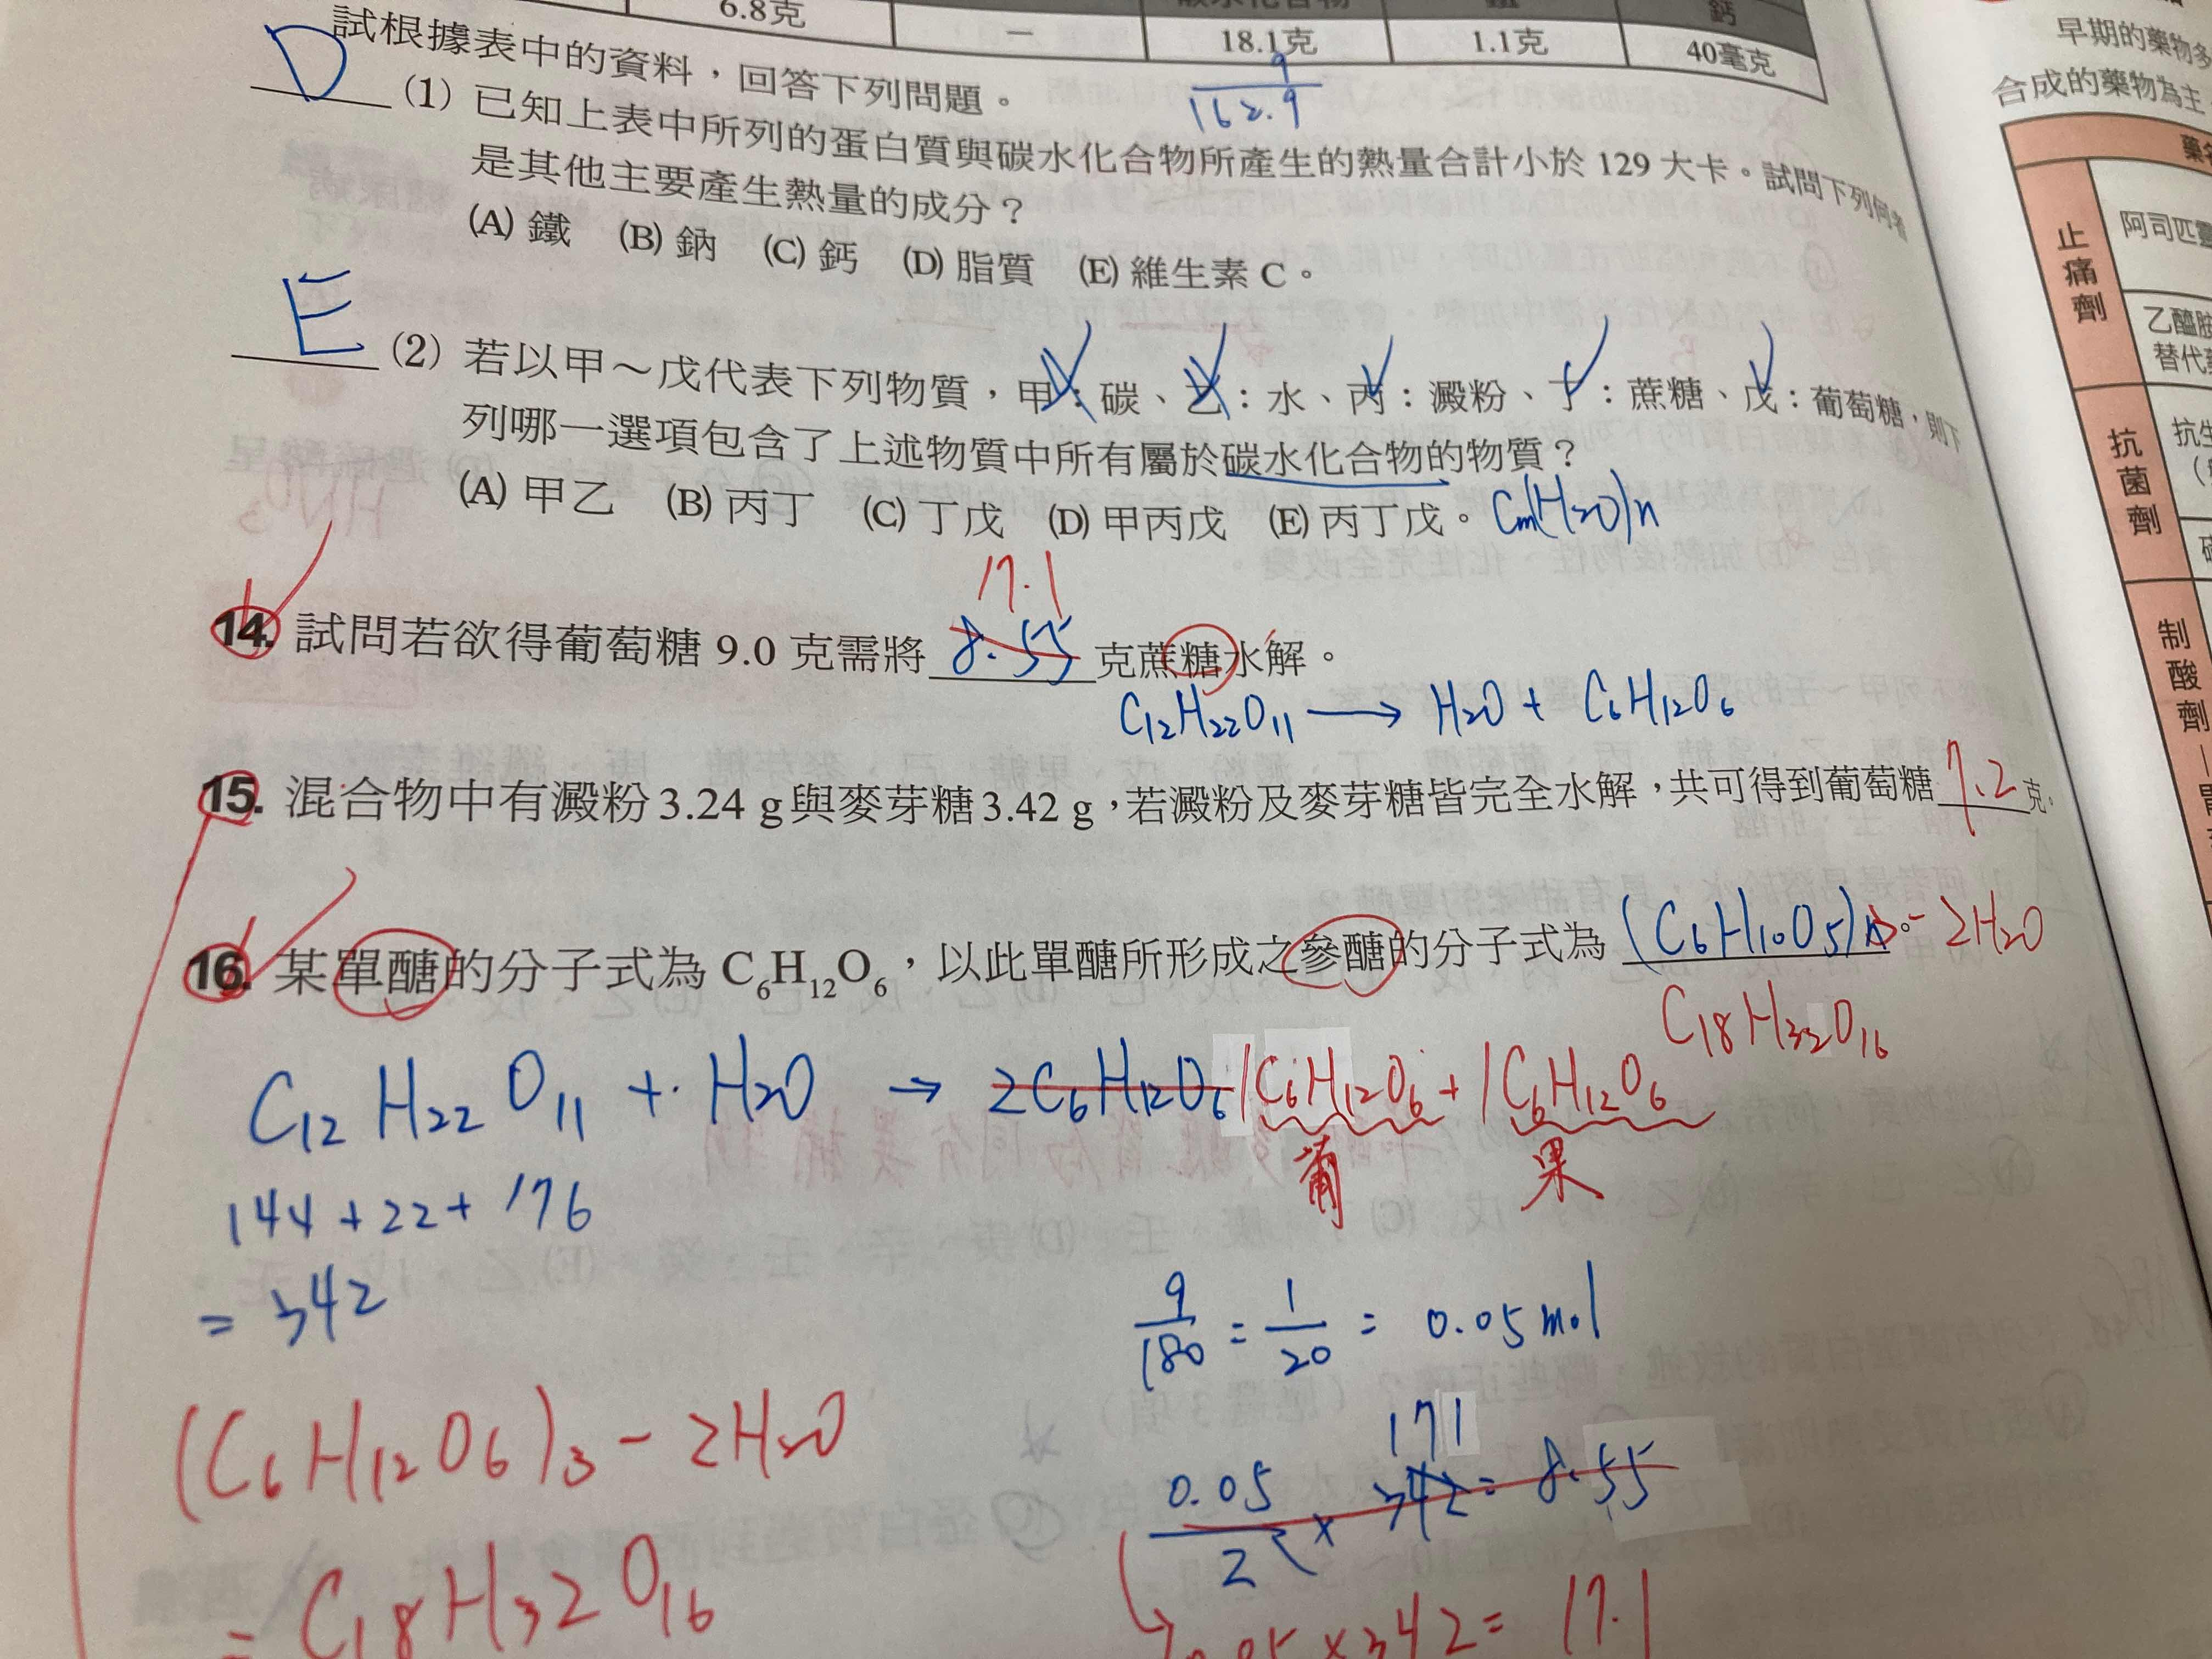 6.8克 — 18.1克 1.1克 40毫克
鈣
試根據表中的資料，回答下列問題。
9
162.9
D (1) 已知上表中所列的蛋白質與碳水化合物所產生的熱量合計小於 129 大卡。試問下列何者
是其他主要產生熱量的成分？
(A) 鐵 (B) 鈉 (C) 鈣 (D) 脂質 (E) 維生素 C。
E (2) 若以甲～戊代表下列物質，甲：碳、乙：水、丙：澱粉、丁：蔗糖、戊：葡萄糖，則下
列哪一選項包含了上述物質中所有屬於碳水化合物的物質？
(A) 甲乙 (B) 丙丁 (C) 丁戊 (D) 甲丙戊 (E) 丙丁戊。 Cm(H2O)n
17.1
14. 試問若欲得葡萄糖 9.0 克需將 8.55 克蔗糖水解。
C12H22O11 → H2O + C6H12O6
15. 混合物中有澱粉 3.24 g 與麥芽糖 3.42 g，若澱粉及麥芽糖皆完全水解，共可得到葡萄糖 7.2 克。
16. 某單醣的分子式為 C6H12O6，以此單醣所形成之參醣的分子式為 (C6H10O5)n。 - 2H2O
C18H32O16
C12H22O11 + H2O → 2C6H12O6 1C6H12O6 + 1C6H12O6
葡 果
144 + 22 + 176
= 342
9/180 = 1/20 = 0.05 mol
171
0.05/2 × 342 = 8.55
(C6H12O6)3 - 2H2O
= C18H32O16
0.05 × 342 = 17.1
早期的藥物多
合成的藥物為主
藥
止痛劑
阿司匹靈
乙醯胺
替代
抗菌劑
抗生
制酸劑